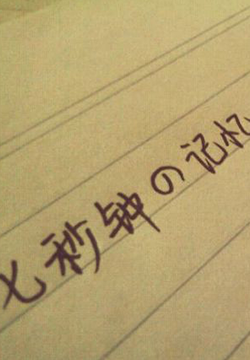 七秒钟の记忆